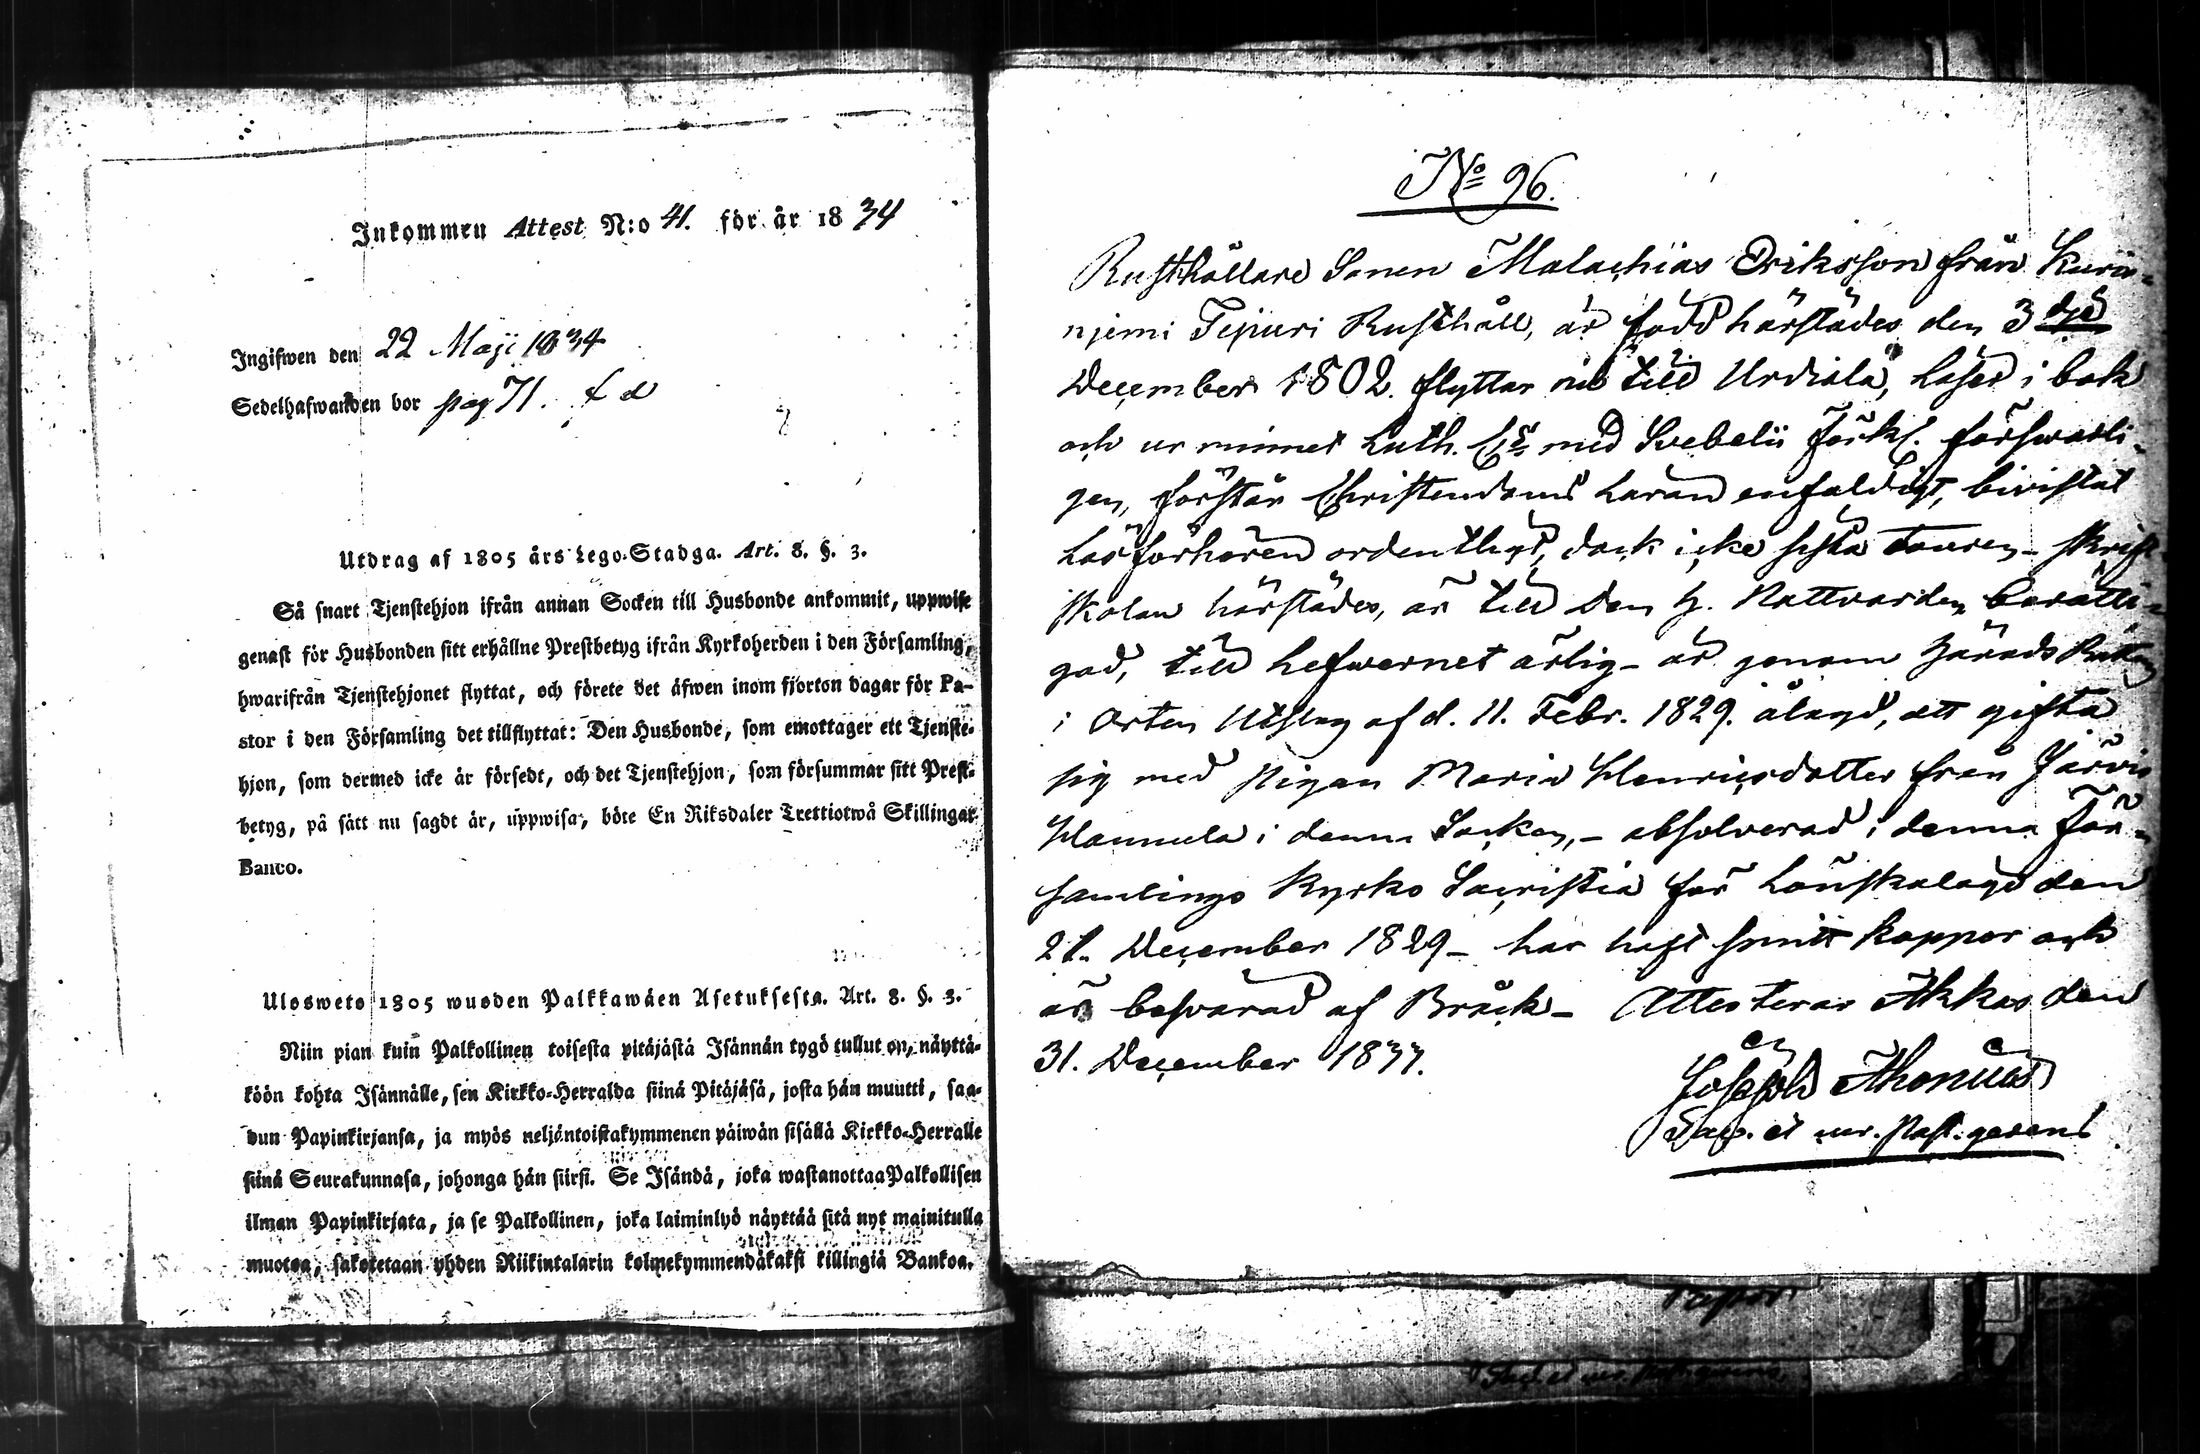 Inkommen Attest N:o 41. för år 1834
Ingifwen den 22 Maji 1834
Sedelhafwanden bor pag 71.
Utdrag af 1805 års Lego-Stadga. Art. 8. §. 3.
Så snart Tjenstehjon ifrån annan Socken till Husbonde ankommit, uppwise
genast för Husbonden sitt erhållne Prestbetyg ifrån Kyrkoherden i den Församling,
hwarifrån Tjenstehjonet flyttat, och förete det äfwen inom fjorton dagar för Pa-
stor i den Församling det tillflyttat: Den Husbonde, som emottager ett Tjenste-
hjon, som dermed icke är försedt, och det Tjenstehjon, som försummar sitt Prest-
betyg, på sätt nu sagdt är, uppwisa, böte En Riksdaler Trettiotwå Skillingar
Banco.
Uloswets 1805 wuoden Palkkawäen Asetuksesta. Art. 8. §. 3.
Niin pian kuin Palkollinen toisesta pitäjästä Isännän tygö tullut on, näyttä-
köön kohta Isännälle, sen Kirkko-Herralda siinä Pitäjäsä, josta hän muutti, saa-
dun Papinkirjansa, ja myös neljäntoistakymmenen päiwän sisällä Kirkko-Herralle
siinä Seurakunnasa, johonga hän siirsi. Se Isändä, joka wastanottaa Palkollisen
ilman Papinkirjata, ja se Palkollinen, joka laiminlyö näyttää sitä nyt mainitulla
muotoa, sakotetaan yhden Riikintalarin kolmekymmendäkaksi killingiä Bankoa.
No 96.
Rusthållare Sonen Malachias Eriksson från Kuris-
njemi Tepuri Rusthåll, är född härstädes den 3 dje
December 1802. flyttar nu till Urdiala, läser i bok
och ur minnet Luth. Cs med Svebelii Förkl. förswarli-
gen, förstår Christendoms Läran enfaldigt, bivistat
Läsförhören ordentligt, dock icke sista Touren - Skrift
skolan härstädes, är till den H. Nattvarden berätti-
gad, till Lefwernet ärlig - är genom Härads Rätten
i Orten Utslag af d. 11. Febr. 1829. ålagd, att gifta
sig med Pigan Maria Henricsdotter från Järvis
Hannula i denna Socken, - absolverad i denna För-
samlings Kyrko Sacristia för Lönskaläge den
21. December 1829 - har haft smitt koppor och
är besvärad af Bråck - Attesterar Akkas den
31. December 1833.
Joseph Ahonius
Sac. et ur. Past. gerens